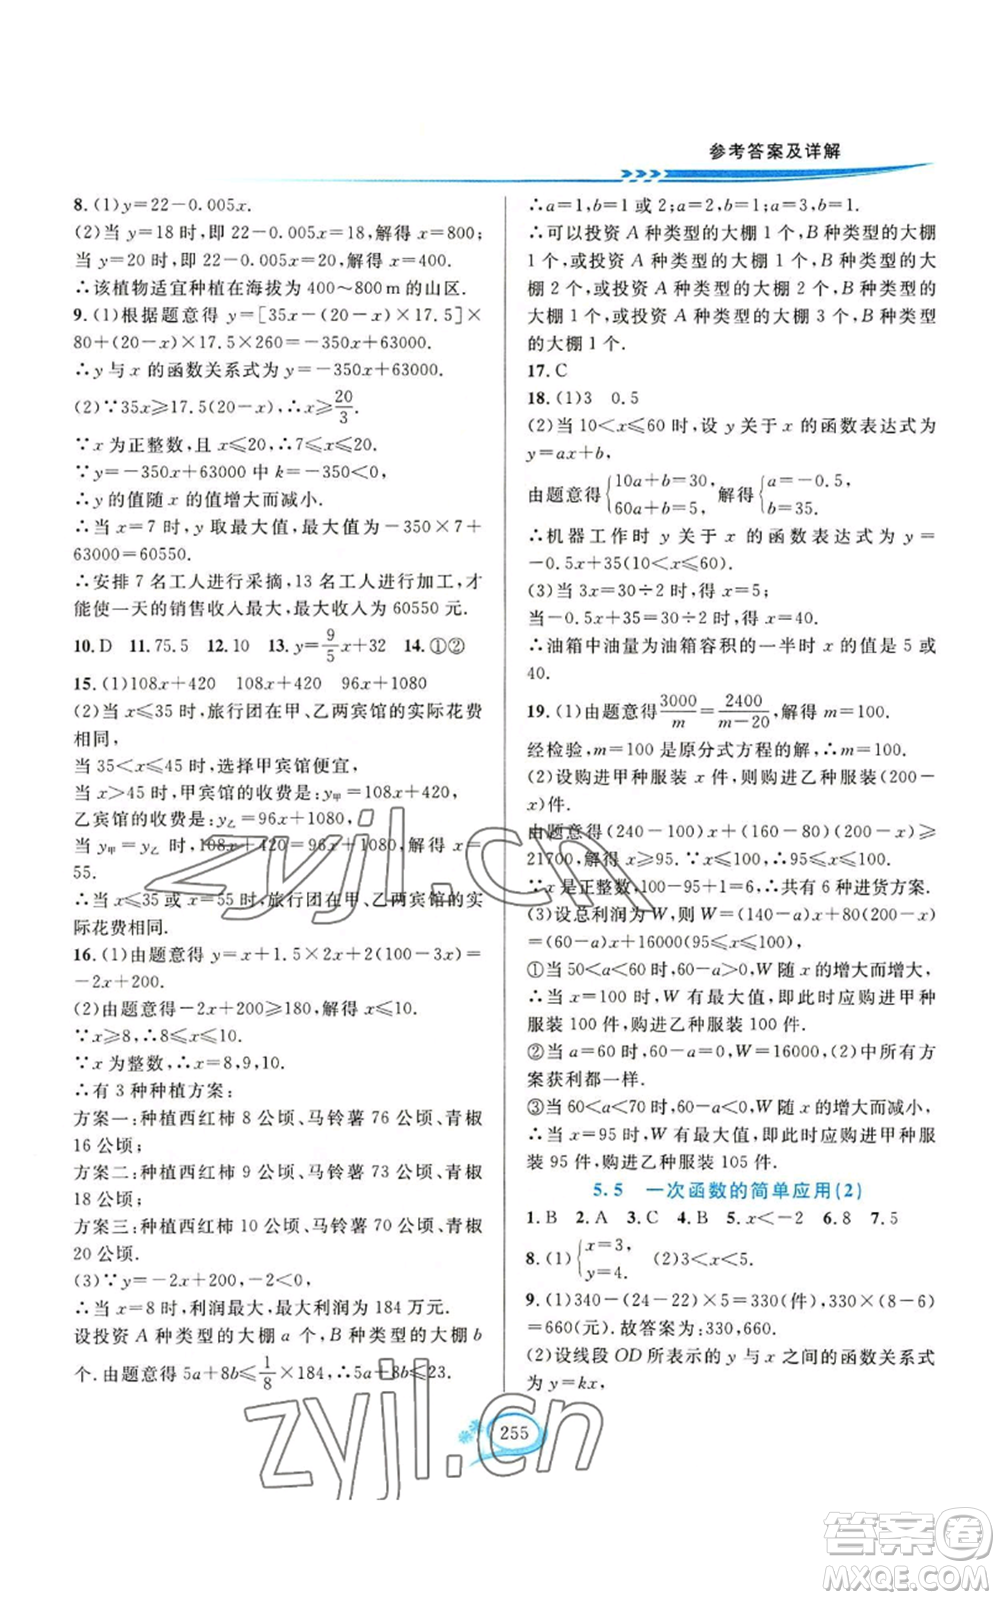 参考答案及详解
8.(1)y=22-0.005x.
(2)当 y=18 时,即 22-0.005x=18,解得 x=800;
当 y=20 时,即 22-0.005x=20,解得 x=400.
∴该植物适宜种植在海拔为 400~800 m 的山区.
9.(1)根据题意得 y=[35x-(20-x)×17.5]×
80+(20-x)×17.5×260=-350x+63000.
∴y 与 x 的函数关系式为 y=-350x+63000.
(2)∵35x⩾17.5(20-x),∴x⩾20/3.
∵x 为正整数,且 x⩽20,∴7⩽x⩽20.
∵y=-350x+63000 中 k=-350<0,
∴y 的值随 x 的值增大而减小.
∴当 x=7 时,y 取最大值,最大值为-350×7+
63000=60550.
∴安排 7 名工人进行采摘,13 名工人进行加工,才
能使一天的销售收入最大,最大收入为 60550 元.
10.D 11.75.5 12.10 13.y=9/5x+32 14.①②
15.(1)108x+420 108x+420 96x+1080
(2)当 x⩽35 时,旅行团在甲、乙两宾馆的实际花费
相同,
当 35<x⩽45 时,选择甲宾馆便宜,
当 x>45 时,甲宾馆的收费是:y甲=108x+420,
乙宾馆的收费是:y乙=96x+1080,
当 y甲=y乙 时,108x+420=96x+1080,解得 x=
55.
∴当 x⩽35 或 x=55 时,旅行团在甲、乙两宾馆的实
际花费相同.
16.(1)由题意得 y=x+1.5×2x+2(100-3x)=
-2x+200.
(2)由题意得-2x+200⩾180,解得 x⩽10.
∵x⩾8,∴8⩽x⩽10.
∵x 为整数,∴x=8,9,10.
∴有 3 种种植方案:
方案一:种植西红柿 8 公顷、马铃薯 76 公顷、青椒
16 公顷;
方案二:种植西红柿 9 公顷、马铃薯 73 公顷、青椒
18 公顷;
方案三:种植西红柿 10 公顷、马铃薯 70 公顷、青椒
20 公顷.
(3)∵y=-2x+200,-2<0,
∴当 x=8 时,利润最大,最大利润为 184 万元.
设投资 A 种类型的大棚 a 个,B 种类型的大棚 b
个.由题意得 5a+8b⩽1/8×184,∴5a+8b⩽23.
∴a=1,b=1 或 2;a=2,b=1;a=3,b=1.
∴可以投资 A 种类型的大棚 1 个,B 种类型的大棚
1 个,或投资 A 种类型的大棚 1 个,B 种类型的大
棚 2 个,或投资 A 种类型的大棚 2 个,B 种类型的大
棚 1 个,或投资 A 种类型的大棚 3 个,B 种类型
的大棚 1 个.
17.C
18.(1)3 0.5
(2)当 10<x⩽60 时,设 y 关于 x 的函数表达式为
y=ax+b,
由题意得{10a+b=30, 60a+b=5, 解得{a=-0.5, b=35.
∴机器工作时 y 关于 x 的函数表达式为 y=
-0.5x+35(10<x⩽60).
(3)当 3x=30÷2 时,得 x=5;
当-0.5x+35=30÷2 时,得 x=40.
∴油箱中油量为油箱容积的一半时 x 的值是 5 或
40.
19.(1)由题意得3000/m=2400/(m-20),解得 m=100.
经检验,m=100 是原分式方程的解,∴m=100.
(2)设购进甲种服装 x 件,则购进乙种服装(200-
x)件.
由题意得(240-100)x+(160-80)(200-x)⩾
21700,解得 x⩾95.∵x⩽100,∴95⩽x⩽100.
∵x 是正整数,100-95+1=6,∴共有 6 种进货方案.
(3)设总利润为 W,则 W=(140-a)x+80(200-
x)=(60-a)x+16000(95⩽x⩽100).
①当 50<a<60 时,60-a>0,W 随 x 的增大而增大,
∴当 x=100 时,W 有最大值,即此时应购进甲种
服装 100 件,购进乙种服装 100 件.
②当 a=60 时,60-a=0,W=16000,(2)中所有方
案获利都一样.
③当 60<a<70 时,60-a<0,W 随 x 的增大而减小,
∴当 x=95 时,W 有最大值,即此时应购进甲种
服装 95 件,购进乙种服装 105 件.
5.5 一次函数的简单应用(2)
1.B 2.A 3.C 4.B 5.x<-2 6.8 7.5
8.(1){x=3, y=4. (2)3<x<5.
9.(1)340-(24-22)×5=330(件),330×(8-6)
=660(元).故答案为:330,660.
(2)设线段 OD 所表示的 y 与 x 之间的函数关系式
为 y=kx,
255
zyjl.cn
zyjl.cn
答案圈
MXQE.COM